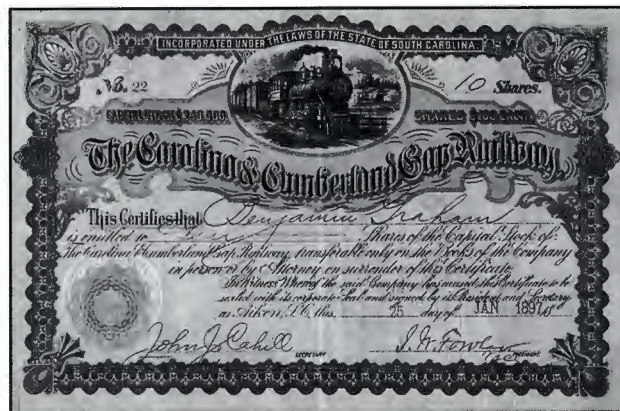 INCORPORATED UNDER THE LAWS OF THE STATE OF SOUTH CAROLINA.
No. 22
10 Shares.
CAPITAL STOCK
SHARES $100 EACH
The Carolina & Cumberland Gap Railway
This Certifies that Benjamin Graham
is entitled to Shares of the Capital Stock of
The Carolina & Cumberland Gap Railway, transferable only on the Books of the Company
in person or by Attorney on surrender of this Certificate.
In Witness Whereof the said Company has caused this Certificate to be
sealed with its corporate Seal and signed by its President and Secretary
at Aiken, S.C. this 25 day of JAN 1897
John J. Cahill SECRETARY J. W. Fowler PRESIDENT